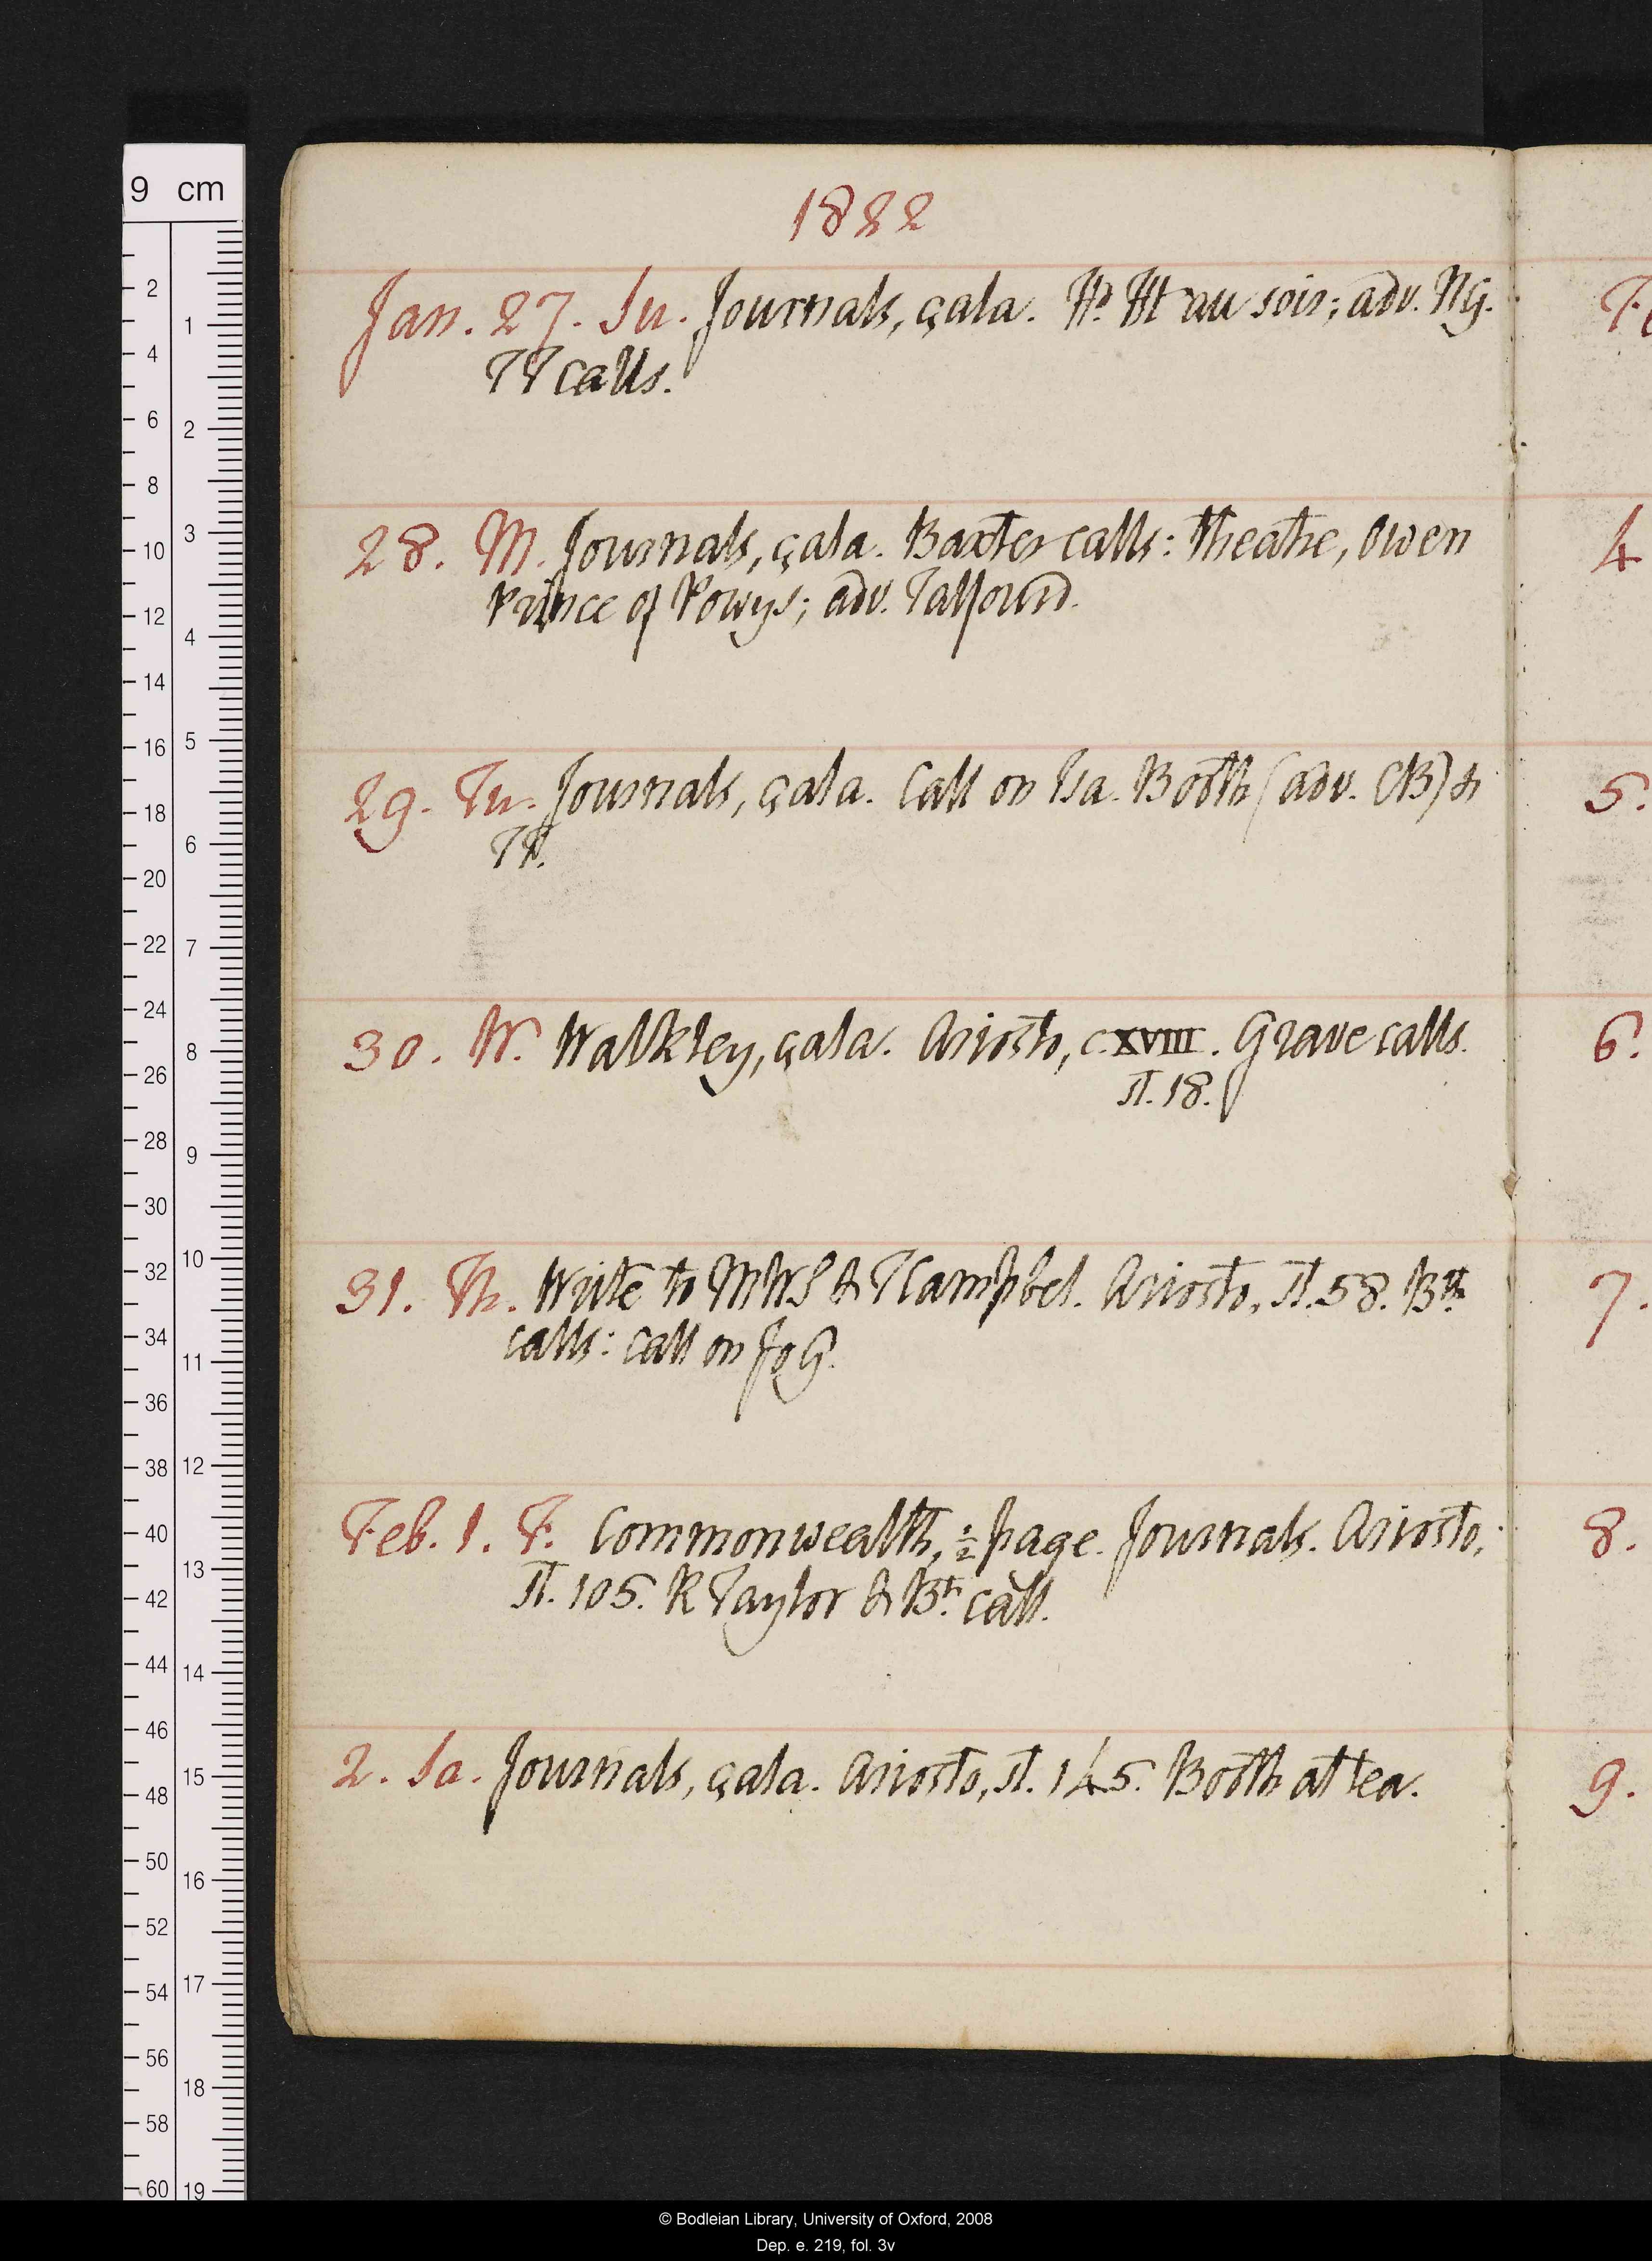 1822
Jan. 27. Su. Journals, çala. Hd. Ht au soir; adv. Ng.
TT calls.
28. M. Journals, çala. Baxter calls: theatre, Owen
Prince of Powys; adv. Talfourd.
29. Tu. Journals, çala. Call on Isa. Booth (adv. CB) &
30. W. Walkley, çala. Ariosto, c. XVIII. Grave calls.
st. 18.
31. Th. Write to MWS & TCampbel. Ariosto, st. 58. Bth
calls: call on JoG.
Feb. 1. F. Commonwealth, ½ page. Journals. Ariosto,
st. 105. R Taylor & Bth call.
2. Sa. Journals, çala. Ariosto, st. 145. Booth at tea.
4
5.
6.
7.
8.
9.
9 cm
2
4
6
8
10
12
14
16
18
20
22
24
26
28
30
32
34
36
38
40
42
44
46
48
50
52
54
56
58
60
1
2
3
4
5
6
7
8
9
10
11
12
13
14
15
16
17
18
19
© Bodleian Library, University of Oxford, 2008
Dep. e. 219, fol. 3v